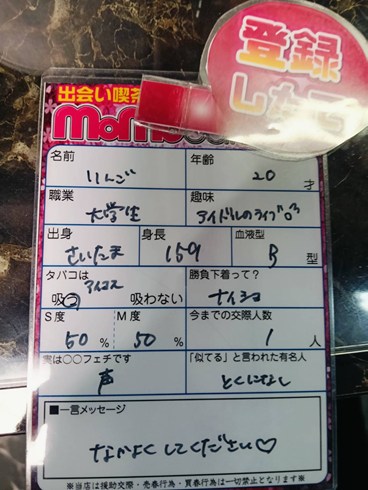 登録
出会い喫茶
名前 りんご
年齢 20 才
職業 大学生
趣味 アイドルのライブ
出身 さいたま
身長 159
血液型 B 型
タバコは 吸う 吸わない アイコス
勝負下着って? ナイショ
S度 50 %
M度 50 %
今までの交際人数 1 人
実は○○フェチです 声
「似てる」と言われた有名人 とくになし
■一言メッセージ
なかよくしてください♡
※当店は援助交際・売春行為・買春行為は一切禁止となります※